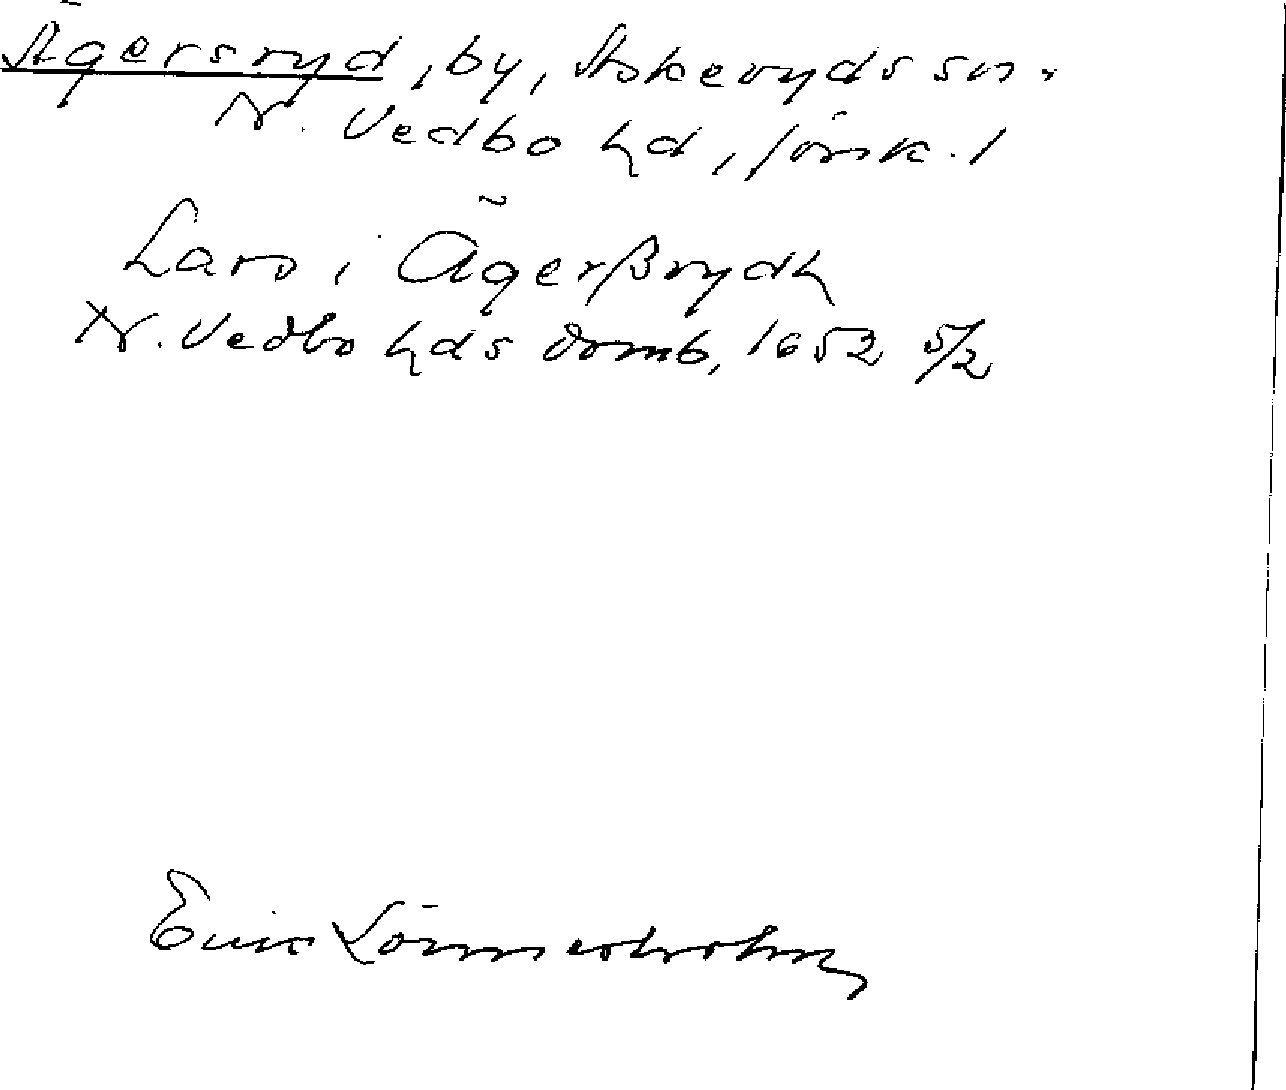 Ägersryd, by, Askeryds sn.
N. Vedbo hd, Jönk. l
Lars i Ägerßrydh
N. Vedbo hds domb, 1652 5/2
Eric Lönnerholm